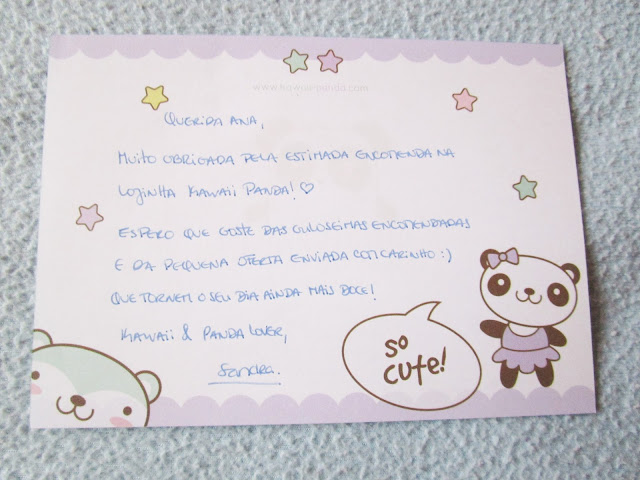 www.kawaii-panda.com
QUERIDA ANA,
MUITO OBRIGADA PELA ESTIMADA ENCOMENDA NA
LOJINHA KAWAII PANDA! ♡
ESPERO QUE GOSTE DAS GULOSEIMAS ENCOMENDADAS
E DA PEQUENA OFERTA ENVIADA COM CARINHO :)
QUE TORNEM O SEU DIA AINDA MAIS DOCE!
KAWAII & PANDA LOVER,
Sandra.
so
cute!